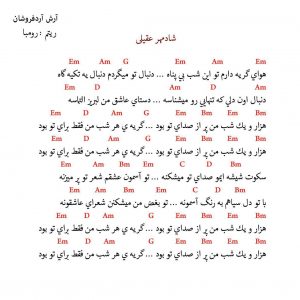 آرش آردفروشان
ریتم : رومبا
شادمهر عقیلی
Em Am G Em Am
هوای گریه دارم تو این شب بی پناه ... دنبال تو میگردم دنبال یه تکیه گاه
Em Am G Am Em
دنبال اون دلی که تنهایی رو میشناسه ... دستای عاشق من لبریز التماسه
Em D Am G Em Bm Em Bm
هزار و یك شب من پر از صدای تو بود ... گریه ی هر شب من فقط برای تو بود
Em D Am G Em Bm Em Bm
هزار و یك شب من پر از صدای تو بود ... گریه ی هر شب من فقط برای تو بود
Em Am Bm Em Am Bm
سکوت شیشه ایمو صدای تو میشکنه ... تو آسمون عشقم شعر تو پر میزنه
Em Am Bm Em C D Bm
با تو دل سیاهم به رنگ آسمونه ... تو بغض من میشکنن شعرای عاشقونه
Em D Am G Em Bm Em Bm
هزار و یك شب من پر از صدای تو بود ... گریه ی هر شب من فقط برای تو بود
Em D Am G Em Bm Em Bm
هزار و یك شب من پر از صدای تو بود ... گریه ی هر شب من فقط برای تو بود